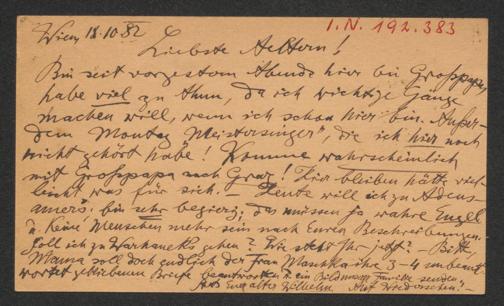 I.N. 192.383
Wien, 18.10.82
Liebste Aeltern!
Bin seit vorgestern Abends hier bei Grosspapa,
habe viel zu thun, da ich wichtige Gänge
machen will, wenn ich schon hier bin. Außer-
dem Montag „Meistersinger", die ich hier noch
nicht gehört habe! Komme wahrscheinlich
mit Grosspapa nach Graz! Hier bleiben hätte viel-
leicht was für sich. Heute will ich zu
bin sehr begierig; das müssen ja wahre Engel
u. keine Menschen mehr sein nach Euren Beschreibungen.
Soll ich zu gehen? Wie steht Ihr jetzt? – Bitte,
Mama soll doch endlich der Frau 3–4 unbeant-
wortet gebliebenen Briefe beantworten u. ein senden!
Euer alter Wilhelm. Auf Wiedersehen!